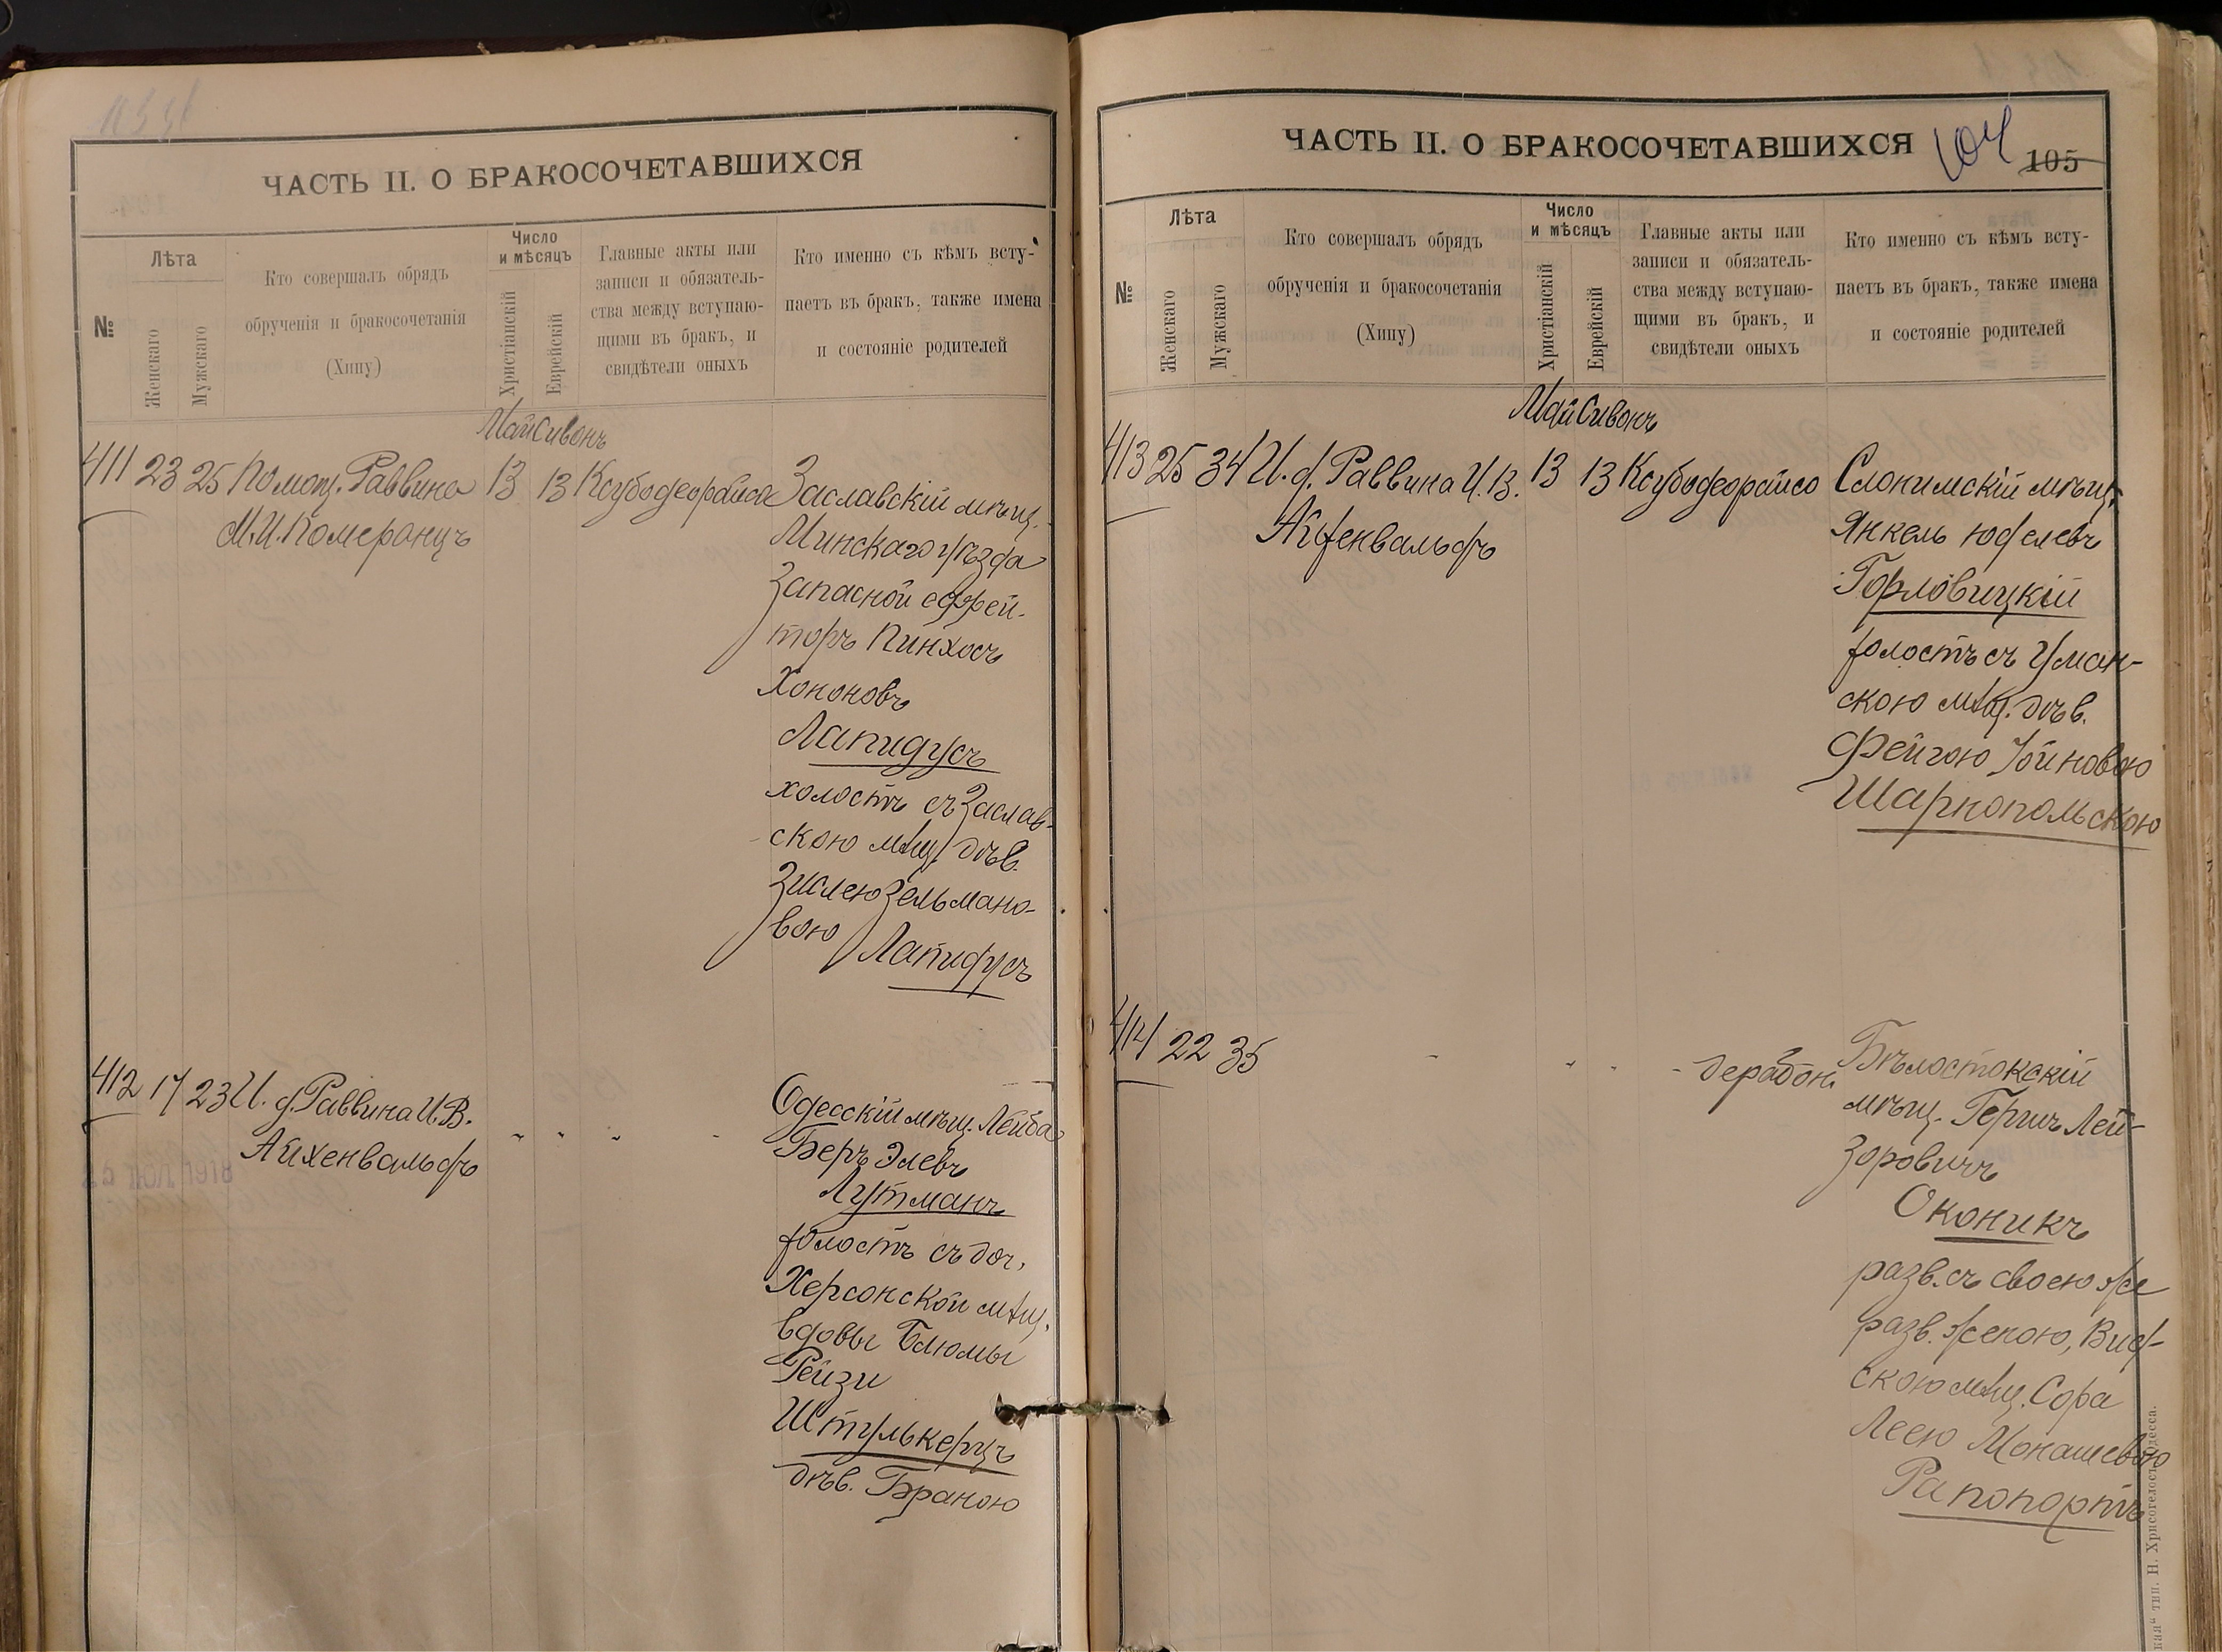 ЧАСТЬ II. О БРАКОСОЧЕТАВШИХСЯ
№
Лѣта
Женскаго
Мужскаго
Кто совершалъ обрядъ
обрученія и бракосочетанія
(Хипу)
Число
и мѣсяцъ
Христіанскій
Еврейскій
Главные акты или
записи и обязатель-
ства между вступаю-
щими въ бракъ, и
свидѣтели оныхъ
Кто именно съ кѣмъ всту-
паетъ въ бракъ, также имена
и состояніе родителей
Май Сивонъ
411 23 25 Помощ. Раввина 13 13 Ксубодеорайсо
М. И. Померанцъ
Заславскій мѣщ.
Минскаго уѣзда
Запасной ефрей-
торъ Пинхосъ
Хононовъ
Лапидусъ
холостъ съ Заслав-
скою мѣщ. дѣв.
Зислею Зельмано-
вою Лапидусъ
412 17 23 И. д. Раввина И. В.
Айхенвальдъ
Одесскій мѣщ. Лейба
Беръ Элевъ
Лутманъ
холостъ съ доч.
Херсонской мѣщ.
вдовы Блюмы
Рейзи
Штулькерцъ
дѣв. Браною
ЧАСТЬ II. О БРАКОСОЧЕТАВШИХСЯ
104
105
№
Лѣта
Женскаго
Мужскаго
Кто совершалъ обрядъ
обрученія и бракосочетанія
(Хипу)
Число
и мѣсяцъ
Христіанскій
Еврейскій
Главные акты или
записи и обязатель-
ства между вступаю-
щими въ бракъ, и
свидѣтели оныхъ
Кто именно съ кѣмъ всту-
паетъ въ бракъ, также имена
и состояніе родителей
Май Сивонъ
413 25 34 И. д. Раввина И. В. 13 13 Ксубодеорайсо
Айхенвальдъ
Слонимскій мѣщ.
Янкель Юделевъ
Горловицкій
холостъ съ Уман-
скою мѣщ. дѣв.
Фейгою Іойновою
Шарнопольскою
414 22 35
дерабон.
Бѣлостокскій
мѣщ. Гершъ Лей-
зоровичъ
Оконикъ
разв. съ своею же
разв. женою, Вид-
скою мѣщ. Сора
Леею Монашевою
Рапопортъ
тип. Н. Хрисогелосъ, Одесса.